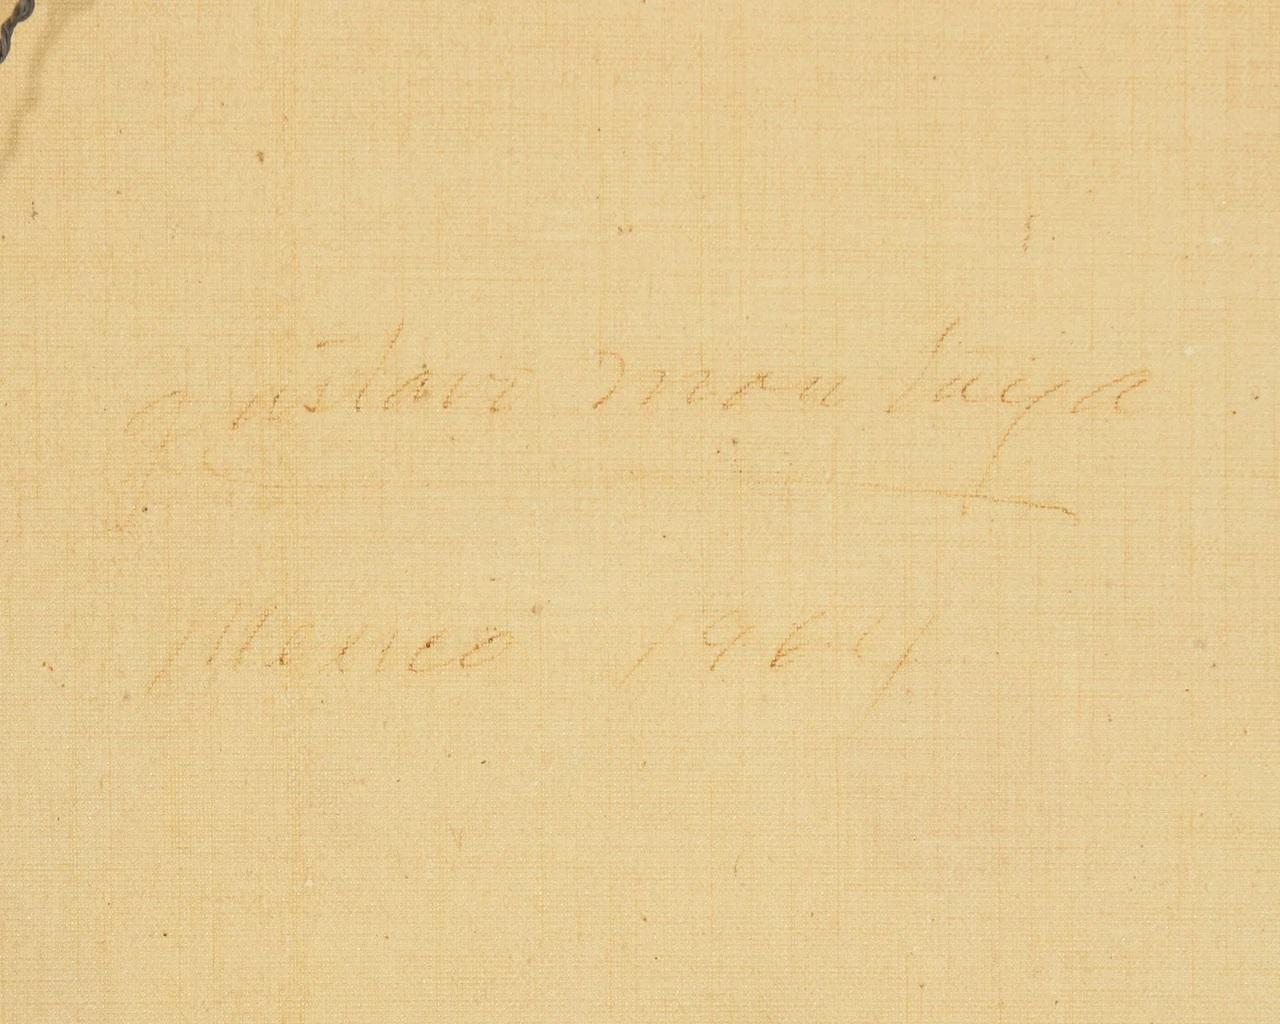 Gustavo Montoya
Mexico 1964